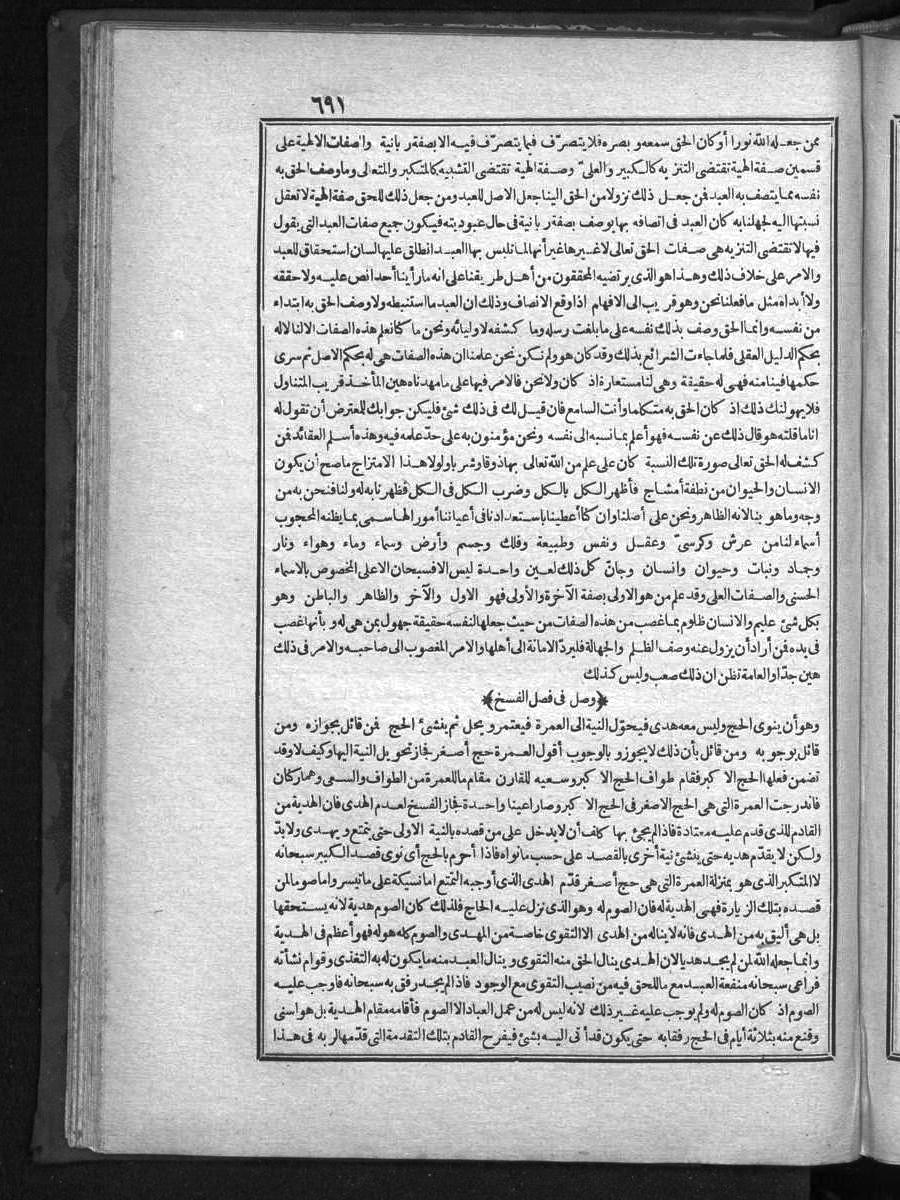 ٦٩١
ممن جعله الله نورا أو كان الحق سمعه وبصره فلا يتصرّف فيما يتصرّف فيه الا بصفة ربانية والصفات الالهية على
قسمين صفة الهية تقتضى التنزيه كالكبير والعلىّ وصفة الهية تقتضى التشبيه كالمتكبر والمتعالى وما وصف الحق به
نفسه مما يتصف به العبد فمن جعل ذلك نزولا من الحق الينا جعل الاصل للعبد ومن جعل ذلك للحق صفة الهية لا تعقل
نسبتها اليه لجهلنا به كان العبد فى اتصافه بها يوصف بصفة ربانية فى حال عبوديته فيكون جميع صفات العبد التى يقول
فيها لا تقتضى التنزيه هى صفات الحق تعالى لا غيرها غير أنها لما تلبس بها العبد انطلق عليها لسان استحقاق للعبد
والامر على خلاف ذلك وهذا هو الذى يرتضيه المحققون من أهل طريقنا على انه ما رأينا أحدا نص عليه ولا حققه
ولا أبداه مثل ما فعلنا نحن وهو قريب الى الافهام اذا وقع الانصاف وذلك ان العبد ما استنبطه ولا وصف الحق به ابتداء
من نفسه وانما الحق وصف بذلك نفسه على ما بلغت رسله وما كشفه لاوليائه ونحن ما كنا نعلم هذه الصفات الا لنا لا له
بحكم الدليل العقلى فلما جاءت الشرائع بذلك وقد كان هو ولم نكن نحن علمنا ان هذه الصفات هى له بحكم الاصل ثم سرى
حكمها فينا منه فهى له حقيقة وهى لنا مستعارة اذ كان ولا نحن فالامر فيها على ما مهدناه هين المأخذ قريب المتناول
فلا يهولنك ذلك اذ كان الحق به متكلما وأنت السامع فان قيل لك فى ذلك شئ فليكن جوابك للمعترض أن تقول له
انا ما قلته هو قال ذلك عن نفسه فهو أعلم بما نسبه الى نفسه ونحن مؤمنون به على حدّ علمه فيه وهذه أسلم العقائد فمن
كشف له الحق تعالى صورة تلك النسبة كان على علم من الله تعالى بها ذوقا وشربا ولولا هذا الامتزاج ما صح أن يكون
الانسان والحيوان من نطفة أمشاج فأظهر الكل بالكل وضرب الكل فى الكل فظهرنا به له ولنا فنحن به من
وجه وما هو بنا لانه الظاهر ونحن على أصلنا وان كنا أعطينا باستعدادنا فى أعياننا أمورا لها سمى بما يظنه المحجوب
أسماء لنا من عرش وكرسىّ وعقل ونفس وطبيعة وفلك وجسم وأرض وسماء وماء وهواء ونار
وجماد ونبات وحيوان وانسان وجانّ كل ذلك لعين واحدة ليس الا فسبحان الاعلى المخصوص بالاسماء
الحسنى والصفات العلى وقد علم من هو الاولى بصفة الآخرة والأولى فهو الاول والآخر والظاهر والباطن وهو
بكل شئ عليم والانسان ظلوم بما غصب من هذه الصفات من حيث جعلها لنفسه حقيقة جهول بمن هى له وبأنها غصب
فى يده فمن أراد أن يزول عنه وصف الظلم والجهالة فليردّ الامانة الى أهلها والامر المغصوب الى صاحبه والامر فى ذلك
هين جدّا والعامة تظن ان ذلك صعب وليس كذلك
﴿وصل فى فصل الفسخ﴾
وهو أن ينوى الحج وليس معه هدى فيحوّل النية الى العمرة فيعتمر ويحل ثم ينشئ الحج فمن قائل بجوازه ومن
قائل بوجوبه ومن قائل بأن ذلك لا يجوز وبالوجوب أقول العمرة حج أصغر فجاز تحويل النية اليها وكيف لا وقد
تضمن فعلها الحج الا كبر فقام طواف الحج الا كبر وسعيه للقارن مقام ما للعمرة من الطواف والسعى وهما ركان
فاندرجت العمرة التى هى الحج الاصغر فى الحج الا كبر وصارا عينا واحدة فجاز الفسخ لعدم الهدى فان الهدية من
القادم للذى قدم عليه معتادة فاذا لم يجئ بها كلف أن لا يدخل على من قصده بالنية الاولى حتى يتمتع ويهدى ولا بدّ
ولكن لا يقدّم هديه حتى ينشئ نية أخرى بالقصد على حسب ما نواه فاذا أحرم بالحج أى نوى قصد الكبير سبحانه
لا المتكبر الذى هو بمنزلة العمرة التى هى حج أصغر قدّم الهدى الذى أوجبه التمتع اما نسيكة على ما تيسر واما صوما لمن
قصده بتلك الزيارة فهى الهدية له فان الصوم له وهو الذى نزل عليه الحاج فلذلك كان الصوم هدية لانه يستحقها
بل هى أليق به من الهدى فانه لا يناله من الهدى الا التقوى خاصة من المهدى والصوم كله هو له فهو أعظم فى الهدية
وانما جعله الله لمن لم يجد هديا لان الهدى ينال الحق منه التقوى وينال العبد منه ما يكون له به التغذى وقوام نشأته
فراعى سبحانه منفعة العبد مع ما للحق فيه من نصيب التقوى مع الوجود فاذا لم يجد رفق به سبحانه فاوجب عليه
الصوم اذ كان الصوم له ولم يوجب عليه غير ذلك لانه ليس له من عمل العباد الا الصوم فأقامه مقام الهدية بل هو اسنى
وقنع منه بثلاثة أيام فى الحج رفقا به حتى يكون قد أتى اليه بشئ فيفرح القادم بتلك التقدمة التى قدّمها لربه فى هذا